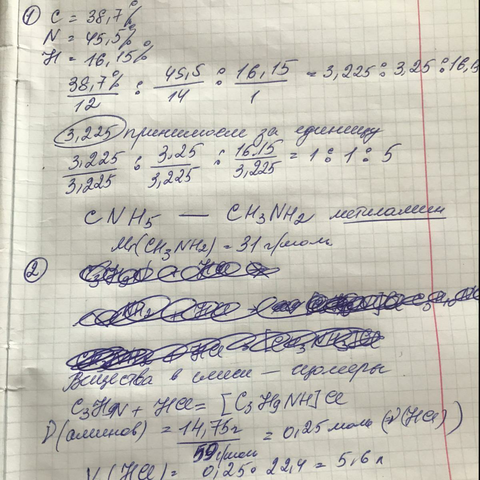 ① C = 38,7%
N = 45,5%
H = 16,15%
38,7%/12 : 45,5/14 : 16,15/1 = 3,225 : 3,25 : 16,
3,225 принимаем за единицу
3,225/3,225 : 3,25/3,225 : 16.15/3,225 = 1 : 1 : 5
CNH5 — CH3NH2 метиламин
Mr(CH3NH2) = 31 г/моль
②
Вещества в смеси — изомеры
C3H9N + HCl = [C3H9NH]Cl
ν(аминов) = 14,75г/59 г/моль = 0,25 моль (ν(HCl))
V(HCl) = 0,25 · 22,4 = 5,6 л